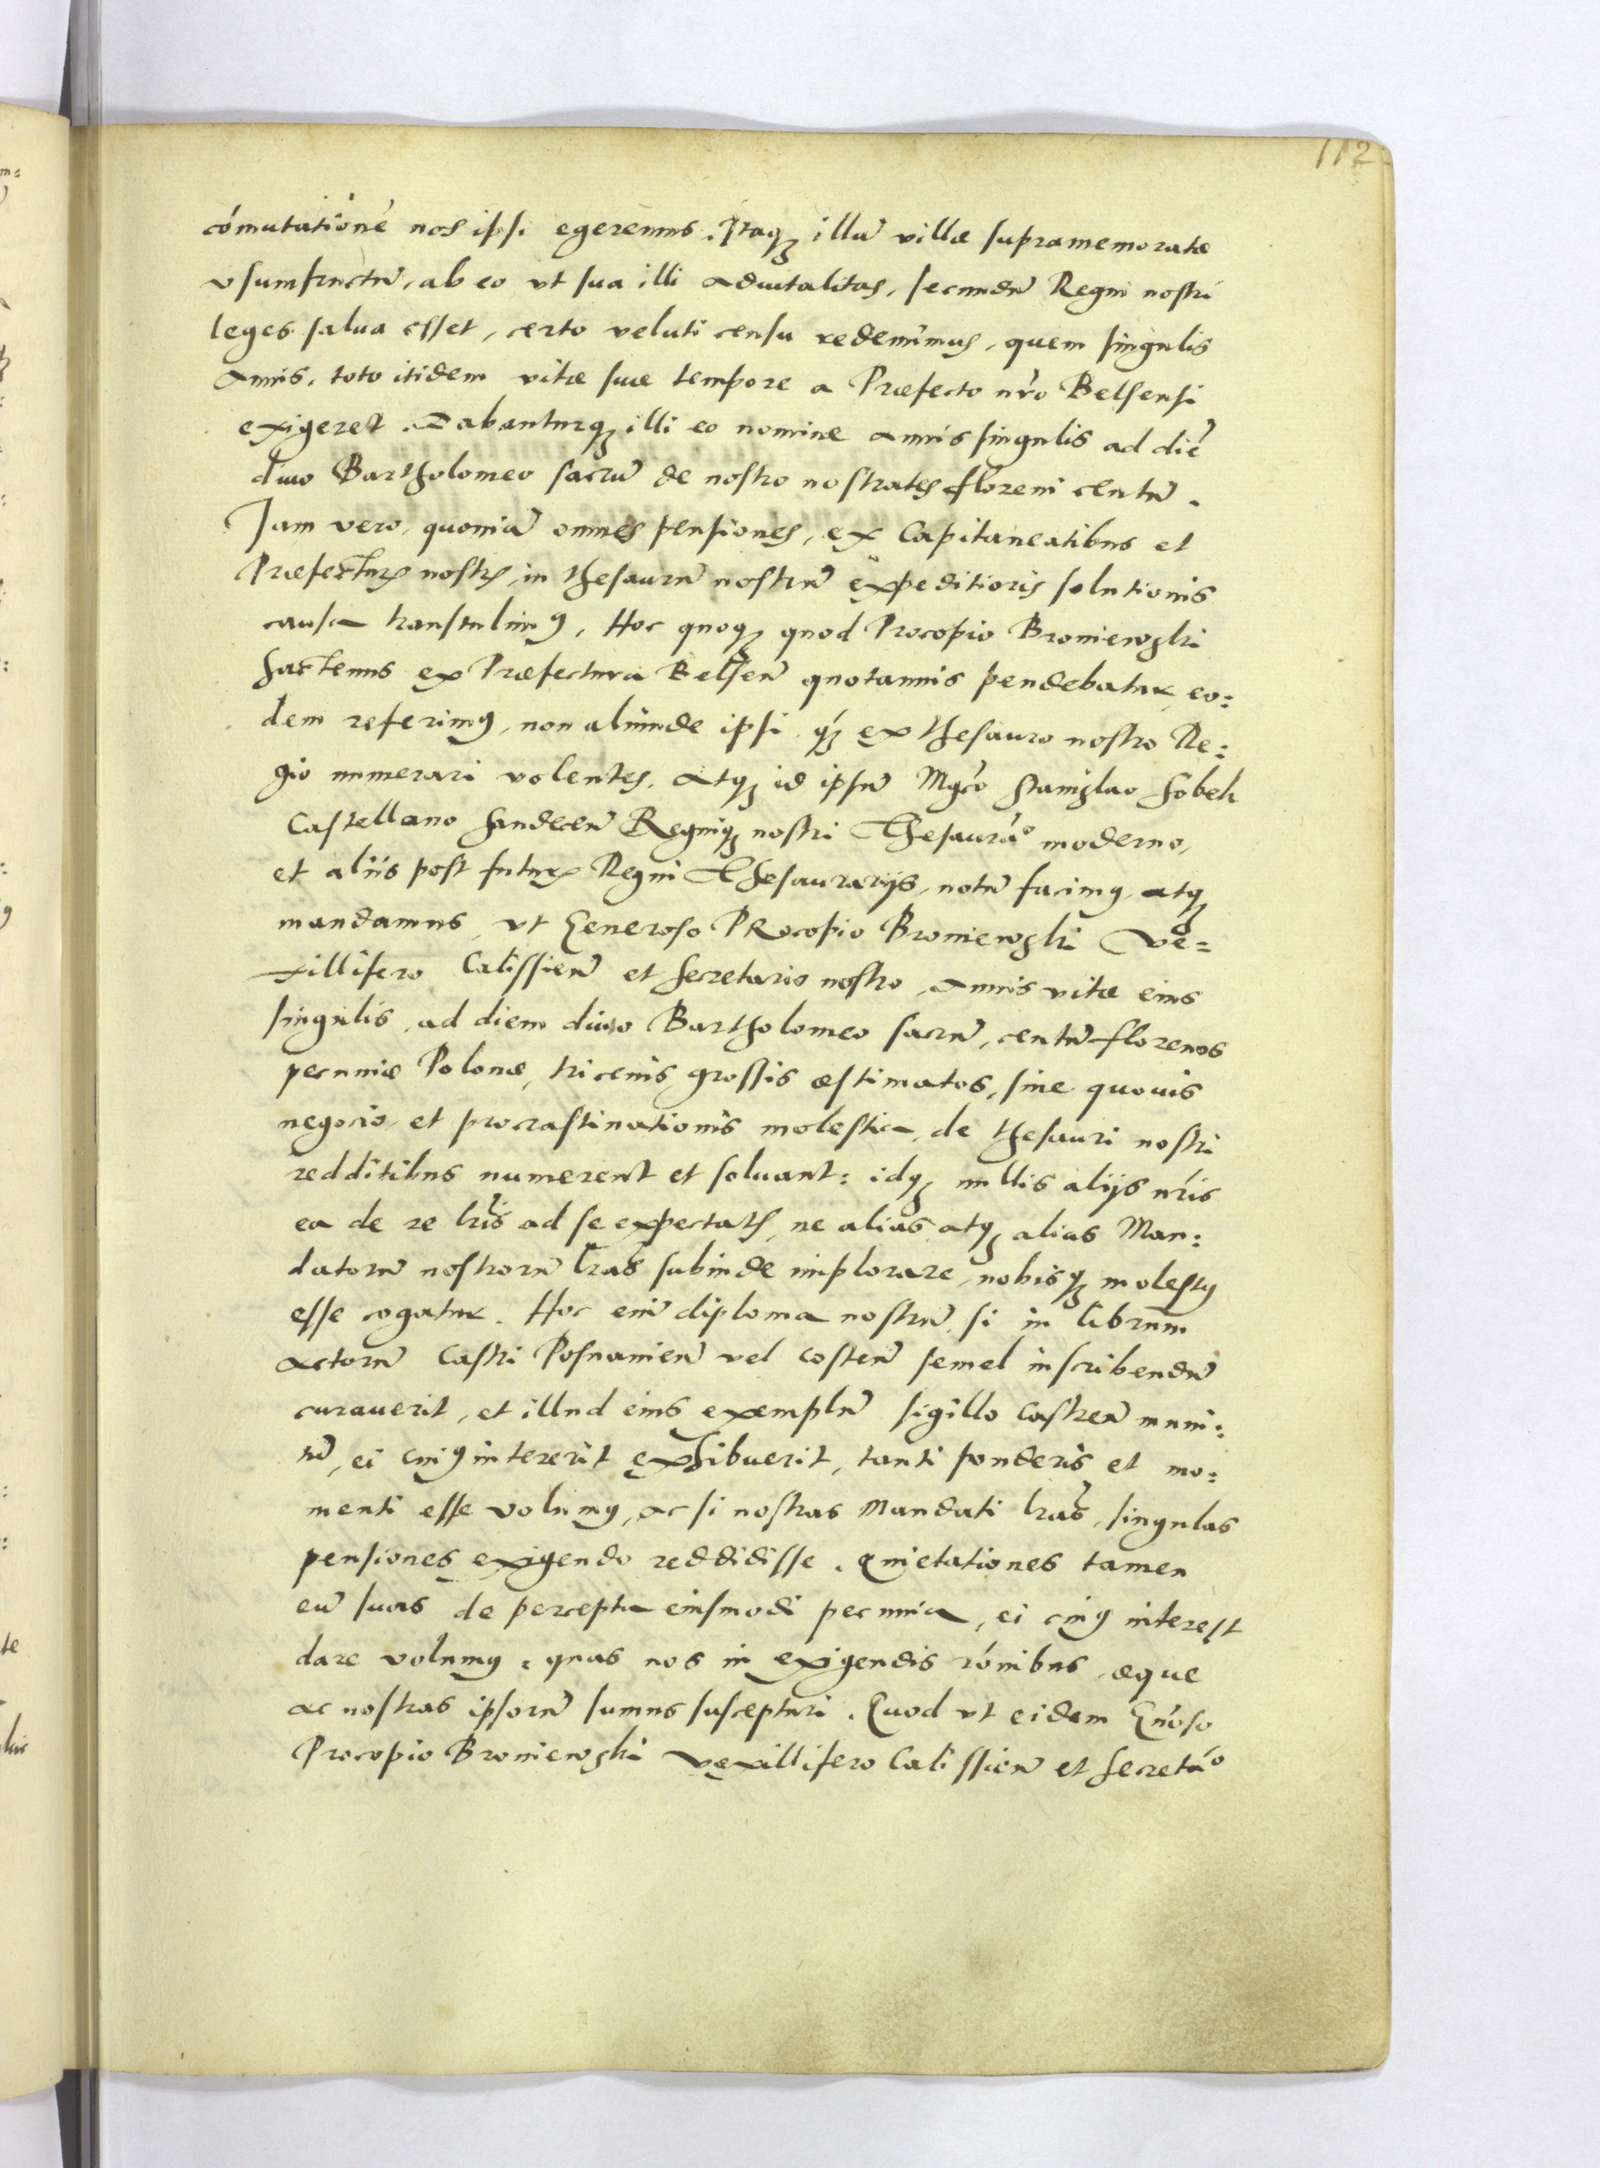 112
cómutationē nos ipsi egeremus. Itaqꝫ illū villæ supramemoratæ
vsumfructū, ab eo vt sua illi aduitalitas, secundū Regni nostri
leges salua esset, certo veluti censu redemimus, quem singulis
annis, toto itidem vitæ suæ tempore a Præfecto nrō Belsensi
exigeret. Dabanturqꝫ illi eo nomine annis singulis ad diē
diuo Bartholomeo sacrū de nostro nostrates floreni centū.
Iam vero, quoniā omnes pensiones, ex Capitaneatibus et
Præfecturꝭ nostrꝭ, in thesaurū nostrū expeditioris solutionis
causa transtulimꝰ, Hoc quoqꝫ quod Procopio Broniewski
hactenus ex Præfectura Belsen̄ quotannis pendebatur, eo:
dem referimꝰ, non aliunde ipsi qꝫ́ ex thesauro nostro Re:
gio numerari volentes. atqꝫ id ipsū Mgcō Stanislao Sobek
Castellano Sandecen̄ Regniqꝫ nostri Thesaurā⁰ moderno,
et aliis post futurꝭ Regni Thesaurarijs, notū facimꝰ, atqꝫ
mandamus, vt Generoso PRocopio Broniewski Ve=
xillifero Calissien̄ et Secretario nostro, annis vitæ eius
singulis, ad diem diuo Bartholomeo sacrū, centū florenos
pecuniæ Polonæ, tricenis grossis æstimatos, sine quouis
negocio, et procrastinationis molestia, de thesauri nostri
redditibus numerent et soluant: idqꝫ nullis alijs nrīs
ea de re lrīs ad se expectatꝭ, ne alias atqꝫ alias Man:
datorū nostrorū lrās subinde implorare, nobisqꝫ molestꝰ
esse cogatur. Hoc enī diploma nostrū, si in librum
actorū Castri Posnanien̄ vel Costen̄ semel inscribendū
curauerit, et illud eius exemplū sigillo Castren̄ muni:
tū, ei cuiꝰ intererit exhibuerit, tanti ponderis et mo:
menti esse volumꝰ, ac si nostras Mandati lrās, singulas
pensiones exigendo reddidisse. Quietationes tamen
eū suas de percepta eiusmodi pecunia, ei cuiꝰ interest
dare volumꝰ, quas nos in exigendis rónibus æque
ac nostras ipsorū sumus suscepturi. Quod vt eidem Gnōso
Procopio Broniewski Vexillifero Calissien̄ et Secretā⁰